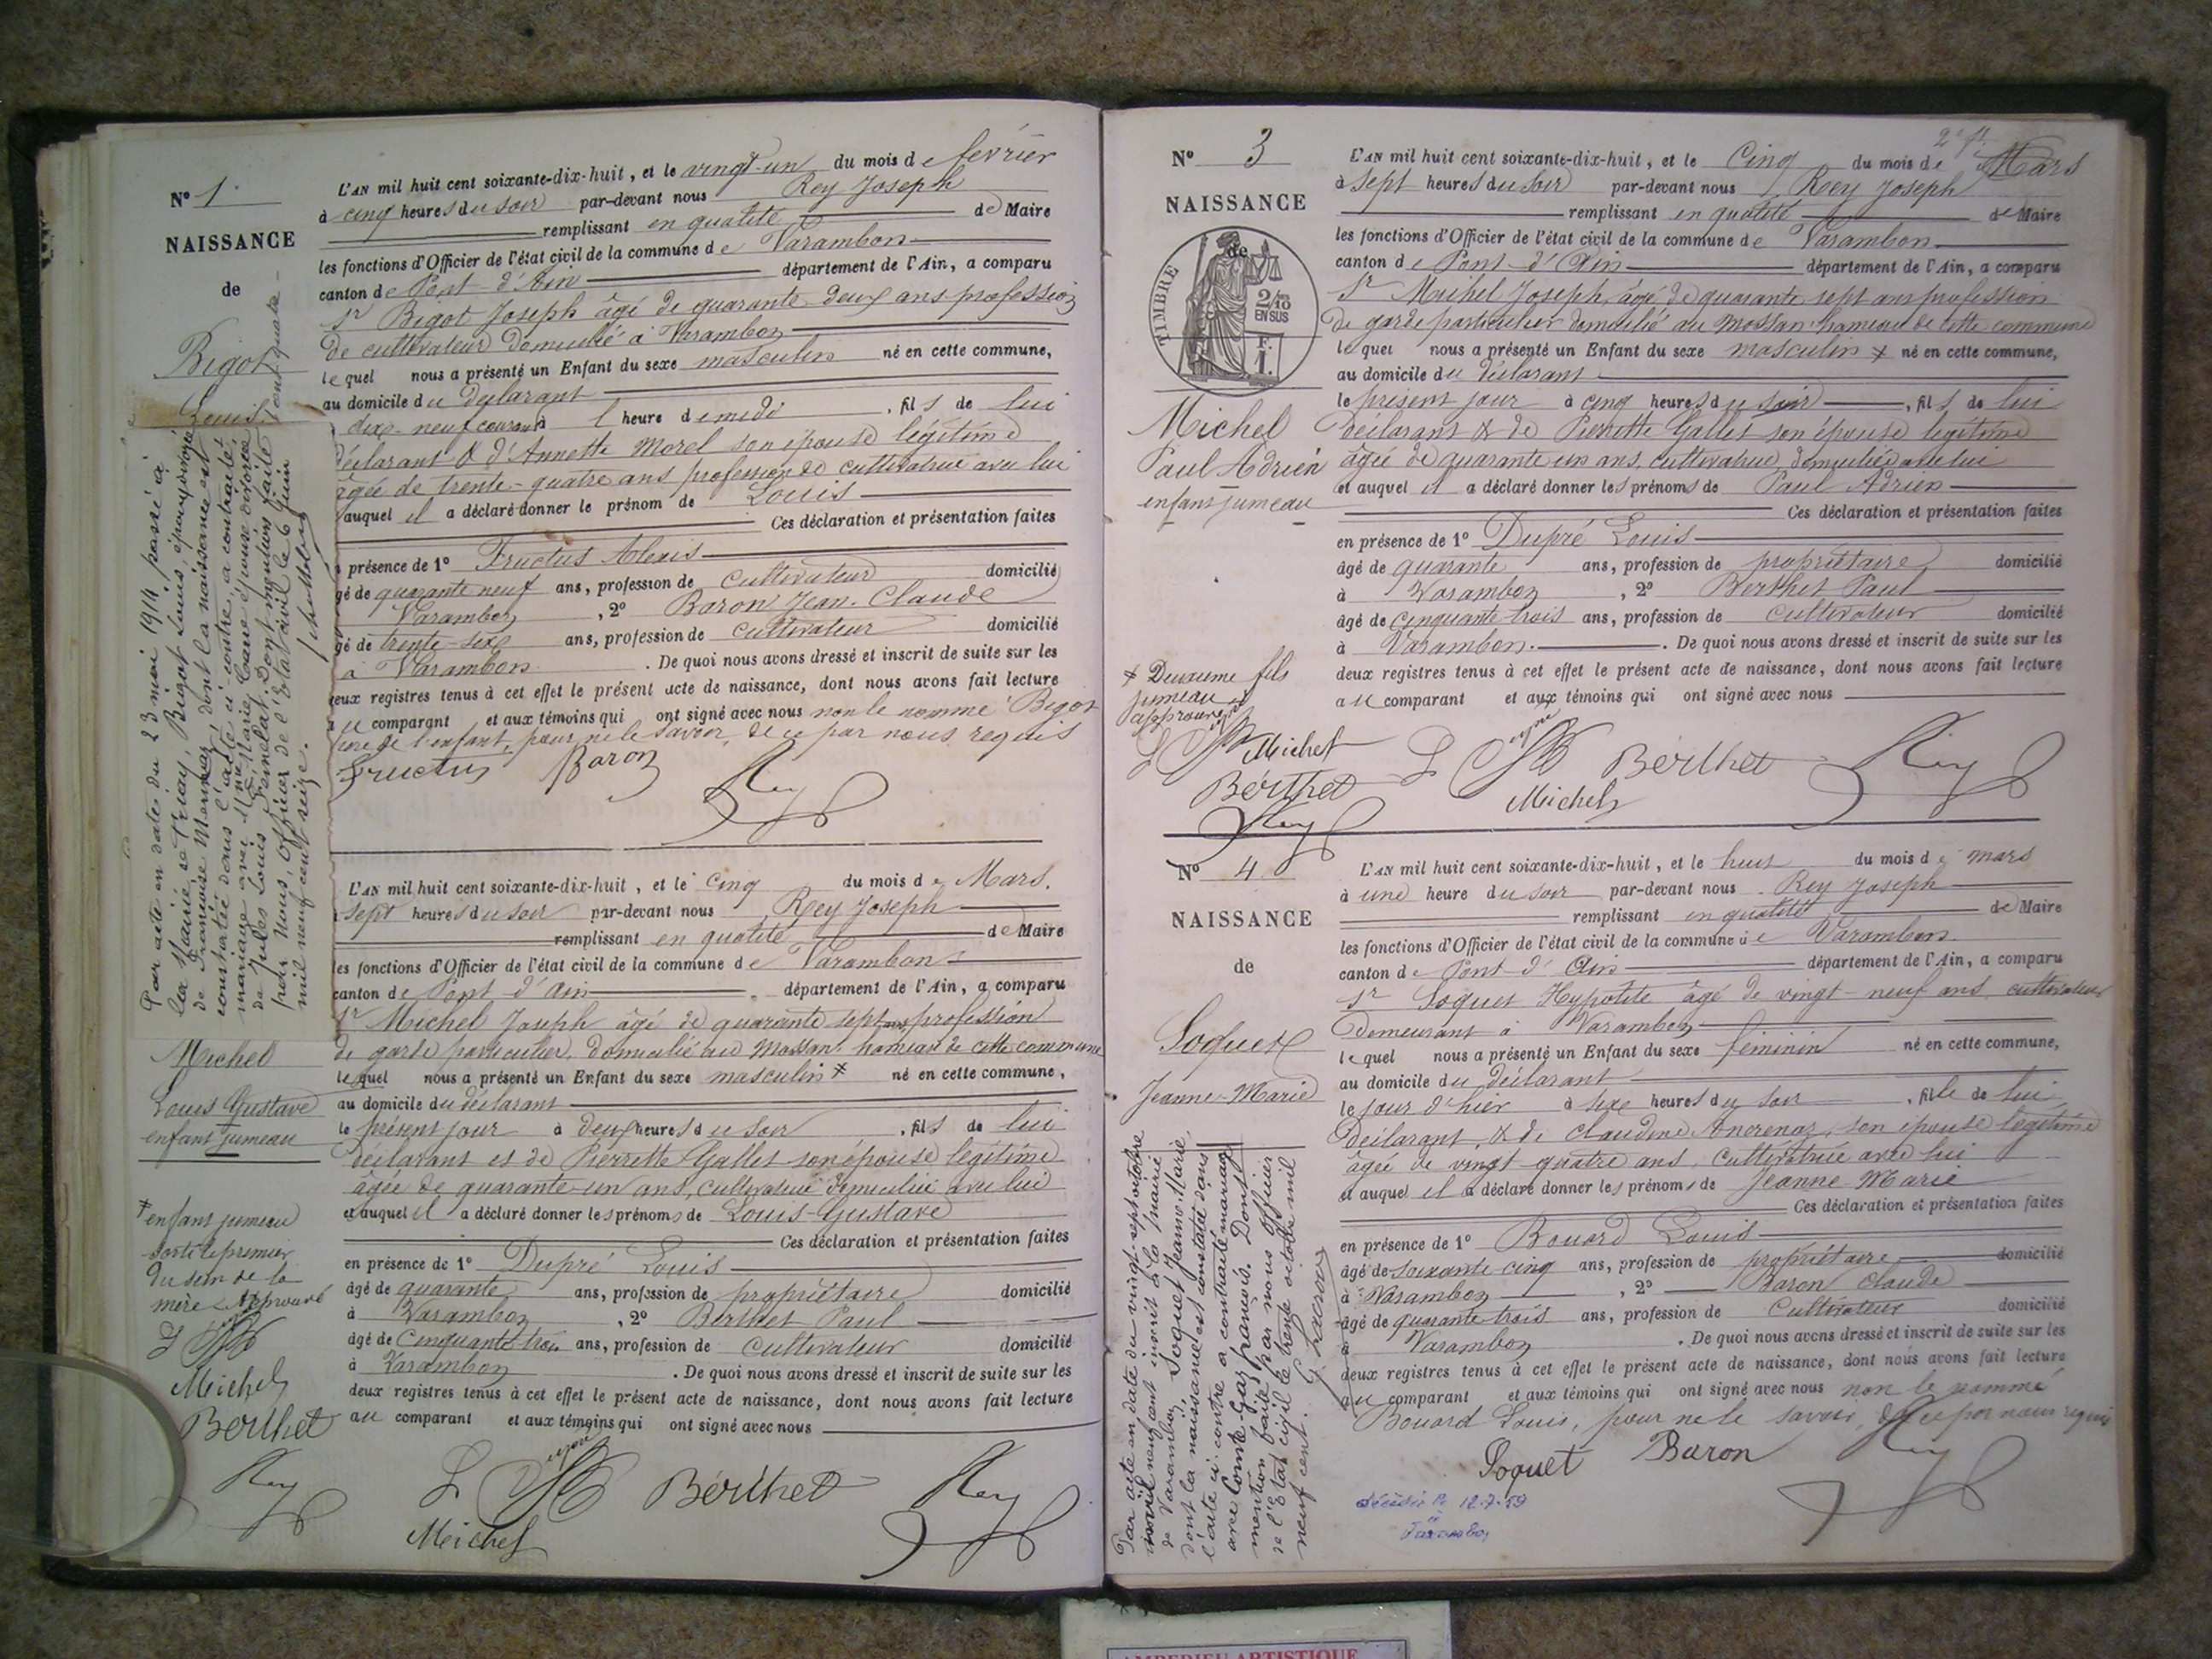 N° 1
NAISSANCE
de
Bigot
Louis
L'AN mil huit cent soixante-dix-huit, et le vingt-un du mois de février
à cinq heures du soir par-devant nous Rey Joseph
remplissant en qualité de Maire
les fonctions d'Officier de l'état civil de la commune de Varambon
canton de Pont-d'Ain département de l'Ain, a comparu
Sr Bigot Joseph âgé de quarante-deux ans profession
de cultivateur domicilié à Varambon
lequel nous a présenté un Enfant du sexe masculin né en cette commune,
au domicile du déclarant
dix-neuf courant à l heure de midi, fils de lui
déclarant & d'Annette Morel son épouse légitime
âgée de trente-quatre ans profession de cultivatrice avec lui
auquel il a déclaré donner le prénom de Louis
Ces déclaration et présentation faites
présence de 1° Fructus Alexis
gé de quarante neuf ans, profession de cultivateur domicilié
Varambon, 2° Baron Jean-Claude
gé de trente-six ans, profession de cultivateur domicilié
à Varambon. De quoi nous avons dressé et inscrit de suite sur les
deux registres tenus à cet effet le présent acte de naissance, dont nous avons fait lecture
au comparant et aux témoins qui ont signé avec nous non le nommé Bigot
père de l'enfant, pour ne le savoir, de ce par nous requis
Fructus Baron Rey
Par acte en date du 23 mai 1914 passé à
la Mairie de Bigot Louis,
de Françoise dont la naissance est
constatée dans l'acte ci-contre, a contracté
mariage avec Marie épouse divorcée
de Jules Louis Dont mention faite
par Nous, Officier de l'Etat civil le 6 Juin
mil neuf cent seize.
Michel
Louis Gustave
enfant jumeau
L'AN mil huit cent soixante-dix-huit, et le cinq du mois de Mars.
sept heures du soir par-devant nous Rey Joseph
remplissant en qualité de Maire
les fonctions d'Officier de l'état civil de la commune de Varambon
canton de Pont-d'Ain département de l'Ain, a comparu
Sr Michel Joseph âgé de quarante sept ans, profession
de garde particulier, domicilié au Mossan hameau de cette commune
lequel nous a présenté un Enfant du sexe masculin * né en cette commune,
au domicile du déclarant
le présent jour à deux heures du soir, fils de lui
déclarant et de Pierrette Gallet son épouse légitime
âgée de quarante-un ans, cultivatrice domiciliée avec lui
et auquel il a déclaré donner les prénoms de Louis-Gustave
Ces déclaration et présentation faites
en présence de 1° Dupré Louis
âgé de quarante ans, profession de propriétaire domicilié
à Varambon, 2° Berthet Paul
âgé de cinquante-trois ans, profession de cultivateur domicilié
à Varambon. De quoi nous avons dressé et inscrit de suite sur les
deux registres tenus à cet effet le présent acte de naissance, dont nous avons fait lecture
au comparant et aux témoins qui ont signé avec nous
* enfant jumeau
sorti le premier
du sein de la
mère approuvé
Michel
Berthet
Rey
Berthet Rey
Michel
N° 3
NAISSANCE
de
TIMBRE
2/10 EN SUS
F. 1.
Michel
Paul Adrien
enfant jumeau
2e f.
L'AN mil huit cent soixante-dix-huit, et le Cinq du mois de Mars
à sept heures du soir par-devant nous Rey Joseph
remplissant en qualité de Maire
les fonctions d'Officier de l'état civil de la commune de Varambon
canton de Pont-d'Ain département de l'Ain, a comparu
Sr Michel Joseph, âgé de quarante sept ans profession
de garde particulier domicilié au Mossan hameau de cette commune
lequel nous a présenté un Enfant du sexe masculin * né en cette commune,
au domicile du déclarant
le présent jour à cinq heures du soir, fils de lui
déclarant & de Pierrette Gallet son épouse légitime
âgée de quarante un ans, cultivatrice, domiciliée avec lui
et auquel il a déclaré donner les prénoms de Paul Adrien
Ces déclaration et présentation faites
en présence de 1° Dupré Louis
âgé de quarante ans, profession de propriétaire domicilié
à Varambon, 2° Berthet Paul
âgé de cinquante trois ans, profession de cultivateur domicilié
à Varambon. De quoi nous avons dressé et inscrit de suite sur les
deux registres tenus à cet effet le présent acte de naissance, dont nous avons fait lecture
au comparant et aux témoins qui ont signé avec nous
* Deuxième fils
jumeau
approuvé
Michel
Berthet
Rey
Berthet Rey
Michel
N° 4
NAISSANCE
de
Soquet
Jeanne-Marie
L'AN mil huit cent soixante-dix-huit, et le huit du mois de mars
à une heure du soir par-devant nous Rey Joseph
remplissant en qualité de Maire
les fonctions d'Officier de l'état civil de la commune de Varambon
canton de Pont-d'Ain département de l'Ain, a comparu
Sr Soquet Hypolite âgé de vingt-neuf ans cultivateur
demeurant à Varambon
lequel nous a présenté un Enfant du sexe féminin né en cette commune,
au domicile du déclarant
le jour d'hier à six heures du soir, fille de lui
déclarant, & de Claudine son épouse légitime
âgée de vingt-quatre ans, cultivatrice avec lui
et auquel il a déclaré donner les prénoms de Jeanne Marie
Ces déclaration et présentation faites
en présence de 1° Bouard Louis
âgé de soixante cinq ans, profession de propriétaire domicilié
à Varambon, 2° Baron Claude
âgé de quarante-trois ans, profession de Cultivateur domicilié
à Varambon. De quoi nous avons dressé et inscrit de suite sur les
deux registres tenus à cet effet le présent acte de naissance, dont nous avons fait lecture
au comparant et aux témoins qui ont signé avec nous non le nommé
Bouard Louis, pour ne le savoir, de ce par nous requis
Soquet Baron Rey
décédée le 12.7.59
à
Varambon
Par acte en date du vingt-sept octobre
mil neuf cent inscrit à la mairie
de Varambon, Soquet Jeanne-Marie,
dont la naissance est constatée dans
l'acte ci-contre a contracté mariage
avec Comte-Gaz François. Dont
mention faite par nous Officier
de l'Etat civil le trente octobre mil
neuf cent.
AMBERIEU ARTISTIQUE